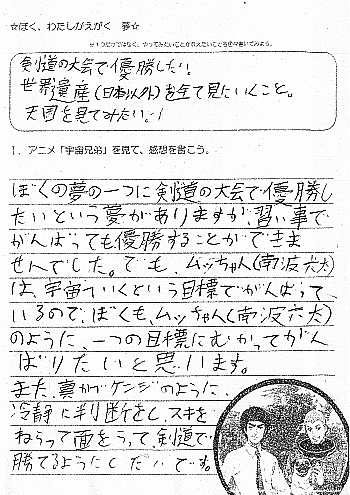 ☆ぼく、わたしがえがく 夢☆
剣道の大会で優勝したい。
世界遺産(日本以外)を全て見たいくこと。
天国を見てみたい。!
1. アニメ「宇宙兄弟」を見て、感想を書こう。
ぼくの夢の一つに剣道の大会で優勝し
たいという夢がありますが、習い事で
がんばっても優勝することができま
せんでした。でも、ムッちゃん(南波六太)
は、宇宙ていくという目標でがんばって
いるので、ぼくも、ムッちゃん(南波六太)
のように、一つの目標にむかってがん
ばりたいと思います。
また、真かべケンジのように、
冷静に判断をし、スキを
ねらって面をうって剣道で
勝てるようにしたいです。